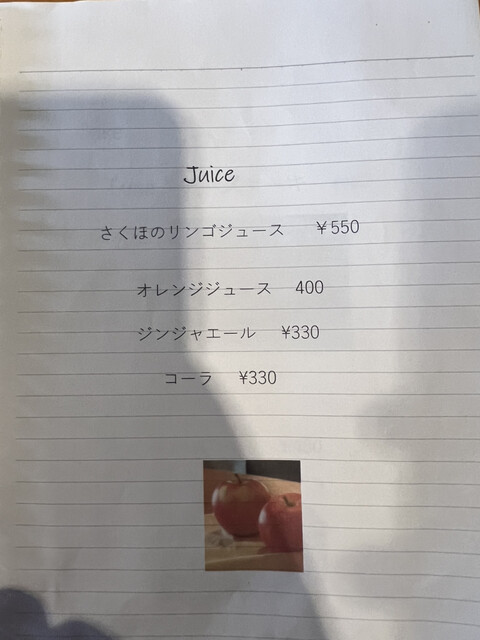 Juice
さくほのリンゴジュース ¥550
オレンジジュース 400
ジンジャエール ¥330
コーラ ¥330